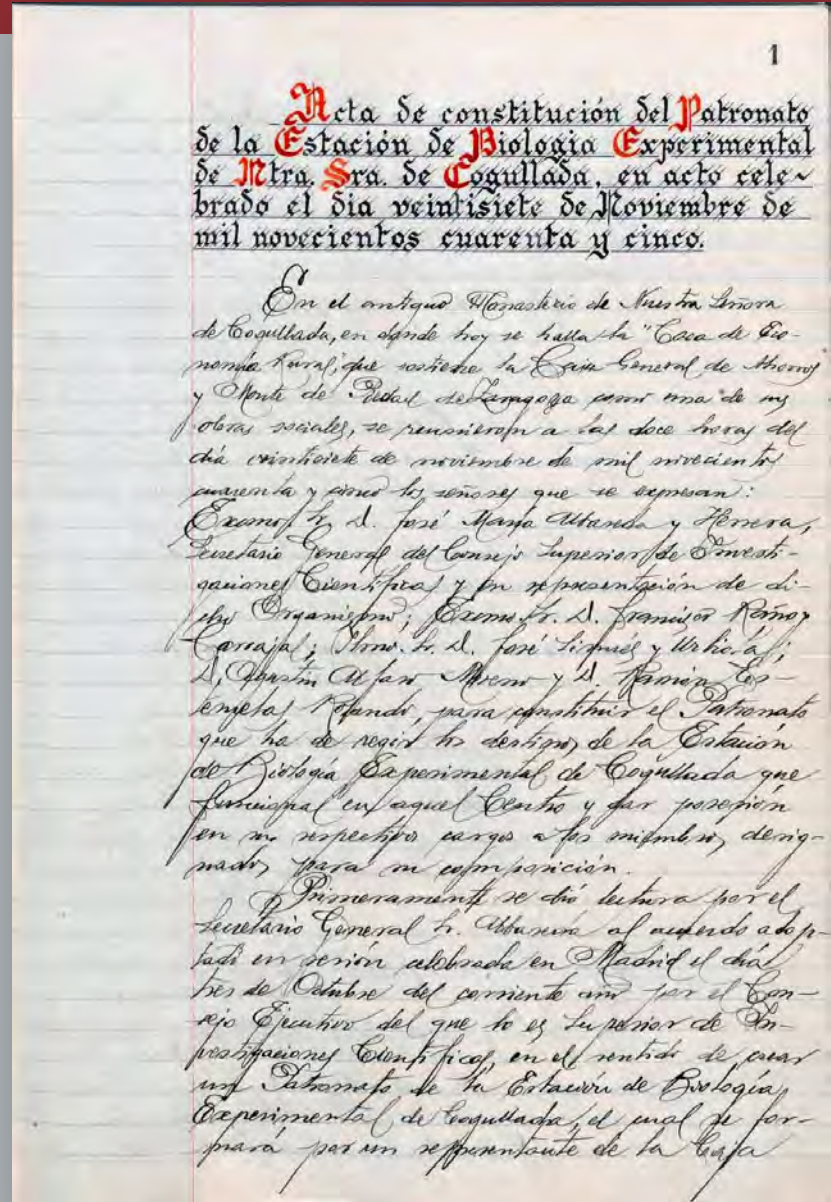 1
Acta de constitución del Patronato
de la Estación de Biologia Experimental
de Ntra. Sra. de Cogullada, en acto cele-
brado el dia veintisiete de Noviembre de
mil novecientos cuarenta y cinco.
En el antiguo Monasterio de Nuestra Señora
de Cogullada, en donde hoy se halla la "Casa de Eco-
nomía Rural", que sostiene la Caja General de Ahorros
y Monte de Piedad de Zaragoza como una de sus
obras sociales, se reunieron a las doce horas del
día veintisiete de noviembre de mil novecientos
cuarenta y cinco los señores que se expresan:
Excmo. Sr. D. José María Albareda y Herrera,
Secretario General del Consejo Superior de Investi-
gaciones Científicas y en representación de di-
cho Organismo; Excmo. Sr. D. Francisco
Carvajal; Ilmo. Sr. D. José Sinués y Urbiola;
D. Agustín Alfaro Moreno y D. Ramón Es-
Rolando, para constituir el Patronato
que ha de regir los destinos de la Estación
de Biología Experimental de Cogullada que
funciona en aquel Centro y dar posesión
en sus respectivos cargos a los miembros desig-
nados para su composición.
Primeramente se dió lectura por el
Secretario General Sr. Albareda al acuerdo adop-
tado en sesión celebrada en Madrid el día
tres de Octubre del corriente año por el Con-
sejo Ejecutivo del que lo es Superior de In-
vestigaciones Científicas, en el sentido de crear
un Patronato de la Estación de Biología
Experimental de Cogullada, el cual se for-
mará por un representante de la Caja